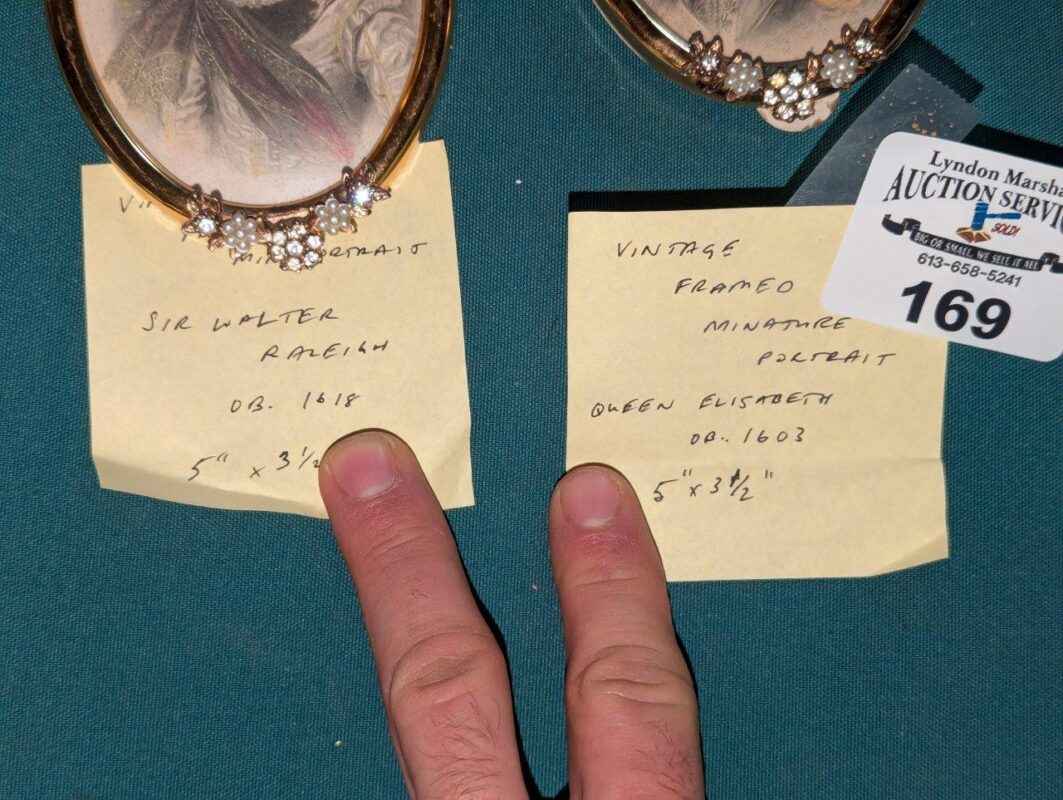 MIN PORTRAIT
SIR WALTER
RALEIGH
OB. 1618
5" x 3 1/2
VINTAGE
FRAMED
MINATURE
PORTRAIT
QUEEN ELISABETH
OB.. 1603
5" x 3 1/2"
Lyndon Marsha
AUCTION SERVIC
SOLD!
BIG OR SMALL, WE SELL IT ALL
613-658-5241
169